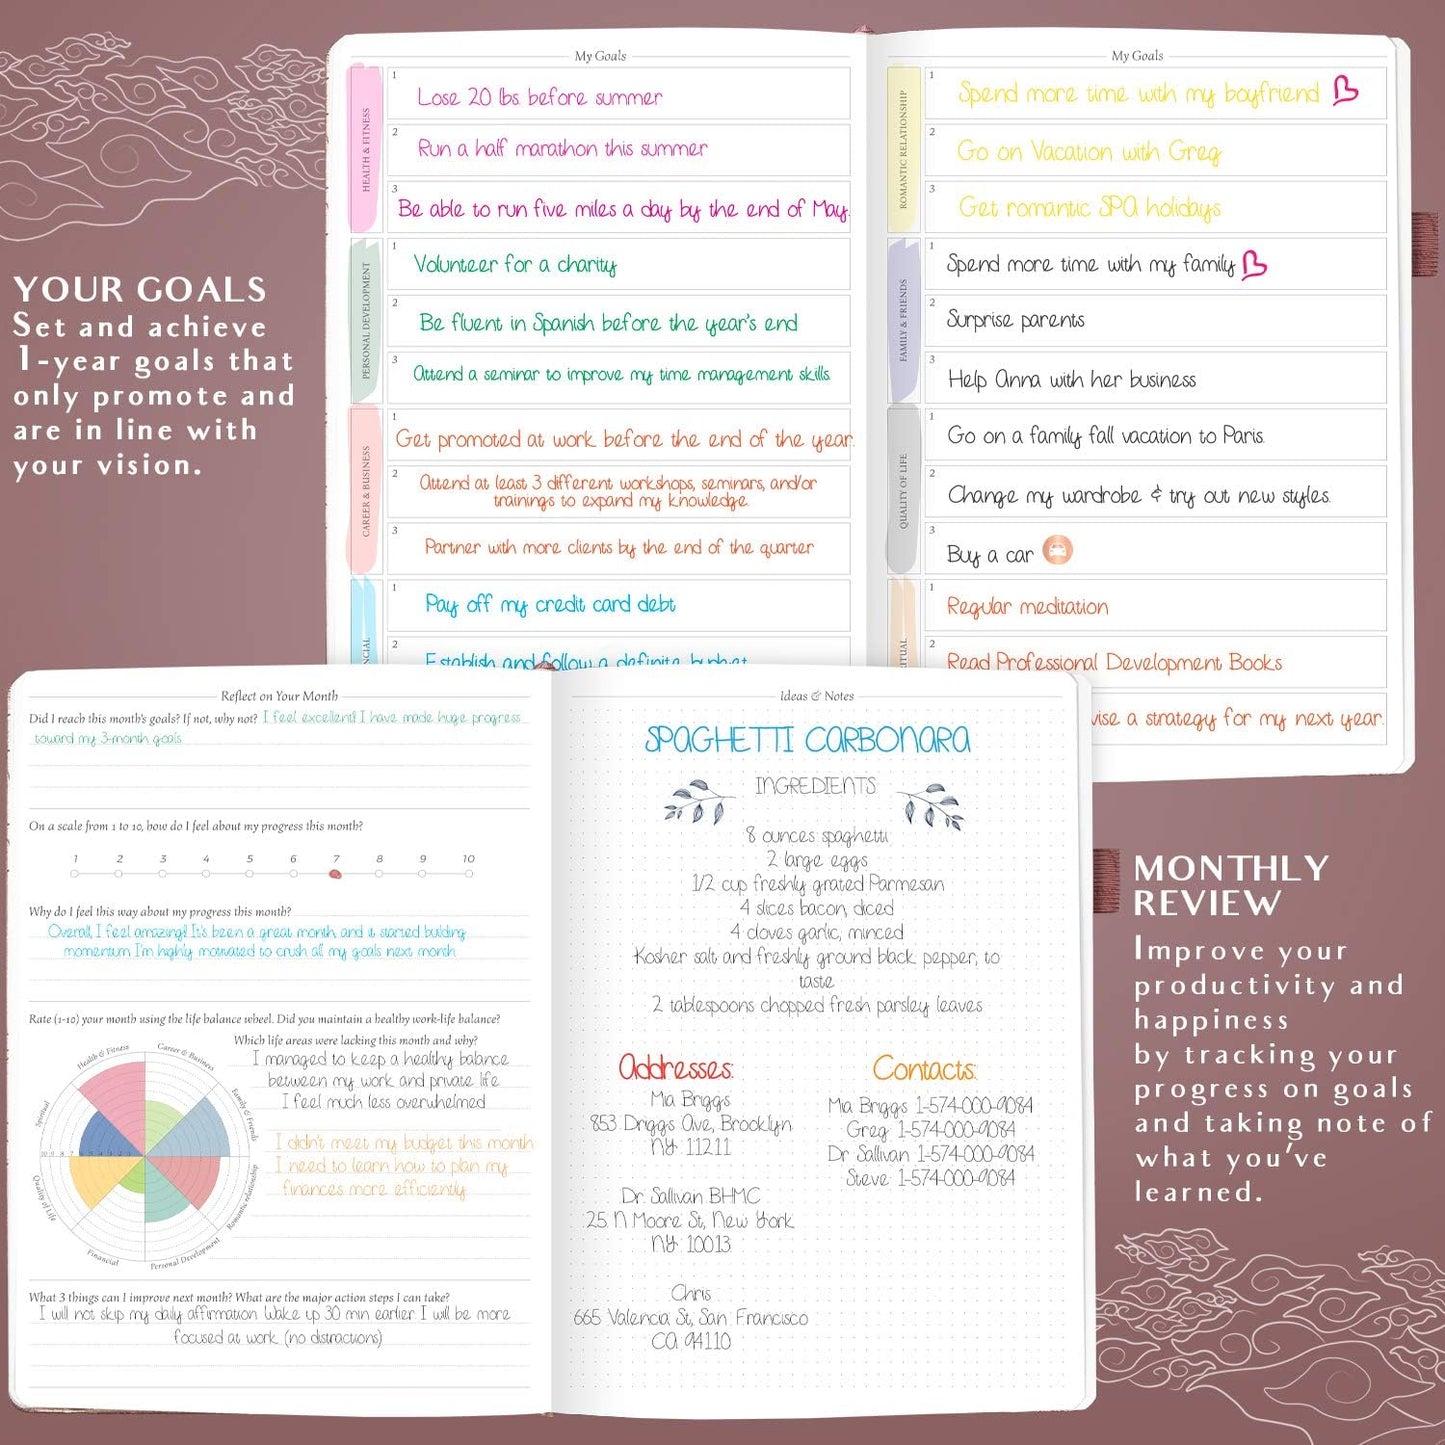 YOUR GOALS
Set and achieve
1-year goals that
only promote and
are in line with
your vision.
My Goals
HEALTH & FITNESS
1
Lose 20 lbs. before summer
2
Run a half marathon this summer
3
Be able to run five miles a day by the end of May.
PERSONAL DEVELOPMENT
1
Volunteer for a charity
2
Be fluent in Spanish before the year's end
3
Attend a seminar to improve my time management skills.
CAREER & BUSINESS
1
Get promoted at work before the end of the year.
2
Attend at least 3 different workshops, seminars, and/or
trainings to expand my knowledge.
3
Partner with more clients by the end of the quarter
1
Pay off my credit card debt
2
Establish and follow a definite budget
My Goals
ROMANTIC RELATIONSHIP
1
Spend more time with my boyfriend
2
Go on Vacation with Greg
3
Get romantic SPA holidays
FAMILY & FRIENDS
1
Spend more time with my family
2
Surprise parents
3
Help Anna with her business
QUALITY OF LIFE
1
Go on a family fall vacation to Paris.
2
Change my wardrobe & try out new styles.
3
Buy a car
1
Regular meditation
2
Read Professional Development Books
vise a strategy for my next year.
Reflect on Your Month
Did I reach this month's goals? If not, why not? I feel excellent! I have made huge progress
toward my 3-month goals.
On a scale from 1 to 10, how do I feel about my progress this month?
1 2 3 4 5 6 7 8 9 10
Why do I feel this way about my progress this month?
Overall, I feel amazing! It's been a great month, and it started building
momentum. I'm highly motivated to crush all my goals next month.
Rate (1-10) your month using the life balance wheel. Did you maintain a healthy work-life balance?
Health & Fitness
Career & Business
Family & Friends
Romantic relationship
Personal Development
Financial
Quality of Life
Spiritual
Which life areas were lacking this month and why?
I managed to keep a healthy balance
between my work and private life
I feel much less overwhelmed
I didn't meet my budget this month
I need to learn how to plan my
finances more efficiently.
What 3 things can I improve next month? What are the major action steps I can take?
I will not skip my daily affirmation. Wake up 30 min earlier. I will be more
focused at work (no distractions)
Ideas & Notes
SPAGHETTI CARBONARA
INGREDIENTS
8 ounces spaghetti
2 large eggs
1/2 cup freshly grated Parmesan
4 slices bacon, diced
4 cloves garlic, minced
Kosher salt and freshly ground black pepper, to
taste
2 tablespoons chopped fresh parsley leaves
Addresses:
Mia Briggs
853 Driggs Ave, Brooklyn
NY 11211
Dr. Sallivan BHMC
25 N Moore St, New York
NY 10013
Chris
665 Valencia St, San Francisco
CA 94110
Contacts:
Mia Briggs 1-574-000-9084
Greg 1-574-000-9084
Dr Sallivan 1-574-000-9084
Steve 1-574-000-9084
MONTHLY
REVIEW
Improve your
productivity and
happiness
by tracking your
progress on goals
and taking note of
what you've
learned.